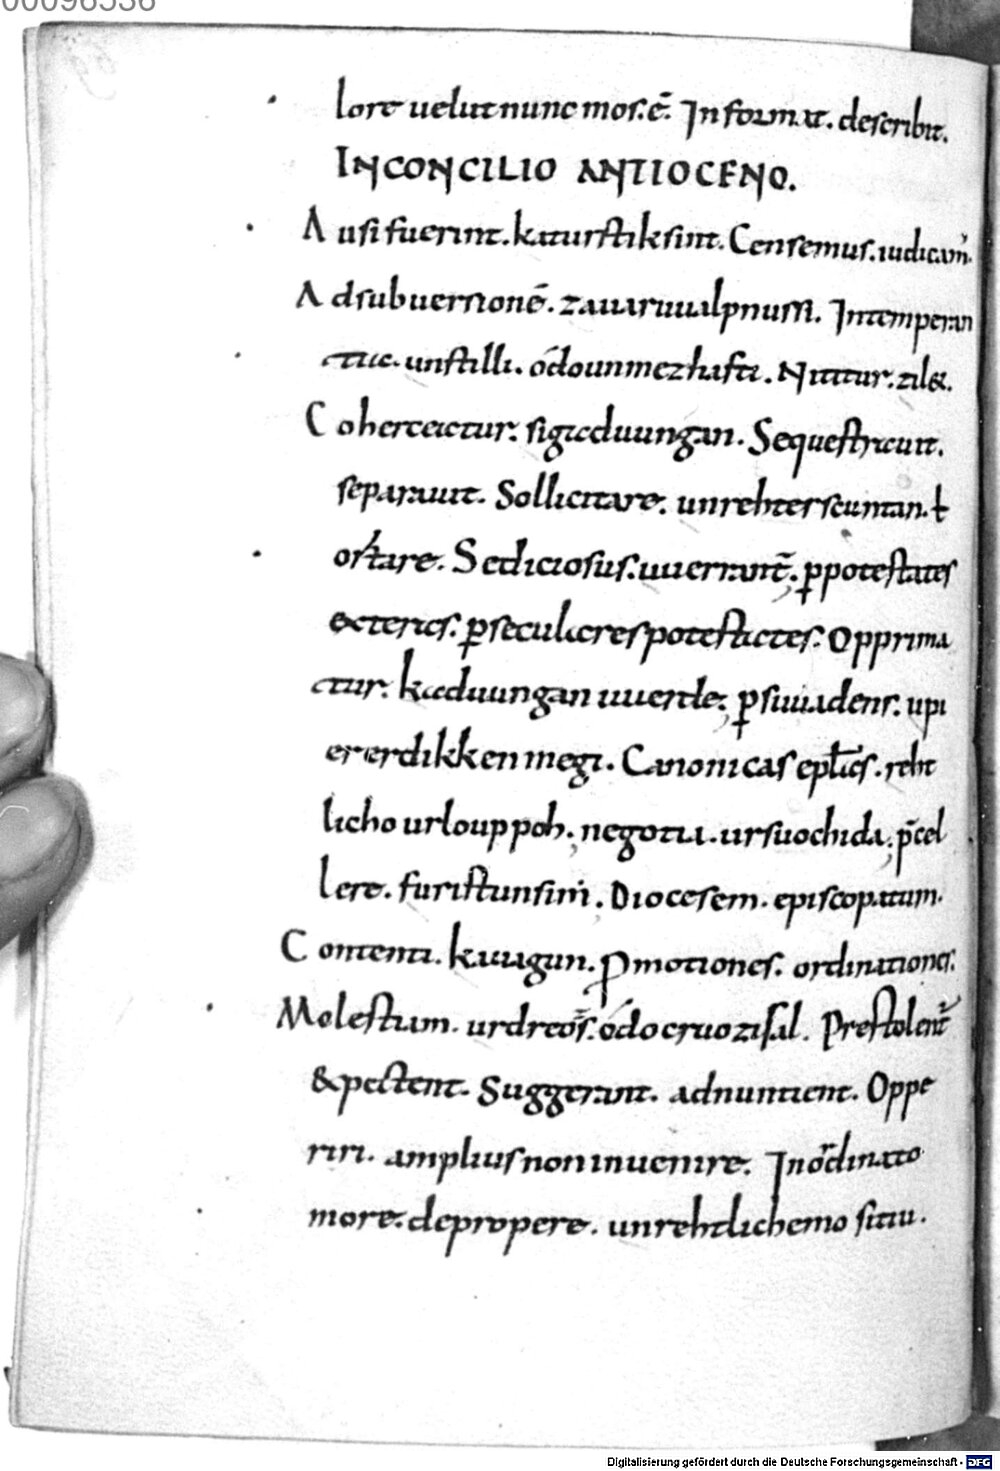 00096536
lore uelut nunc mos.ē. Informat. describit.
INCONCILIO ANTIOCENO.
Ausi fuerint. katurstik sint. Censemus. iudicam̄.
Ad subuersionē. za uaruualpnussi. Intemperan
tiae unstilli. odo unmezhafti. Nititur. zil&.
Coherceatur. sigaduungan. Sequestrauit.
separauit. Sollicitare. unrehter scuntan. ł
ortare. Sediciosus. uuerrant̄. ꝑ potestates
exteras. ꝑ seculares potestates. Opprima
tur. kaduungan uuerde. ꝑsuuadens. upi
er erdikken megi. Canonicas epłas. reht
licho urlouppoh. negotii. ursuochida. p̄cel
lere. furistun sim̄. Diocesem. episcopatum.
Contenti. kauagun. Ꝓmotiones. ordinationes.
Molestum. urdreoz̄. odo cruozisal. Prestolent̄
&pectent. Suggerant. adnuntient. Oppe
riri. amplius non inuenire. Inordinato
more. depropere. unrehtlichemo sitiu.
Digitalisierung gefördert durch die Deutsche Forschungsgemeinschaft - DFG